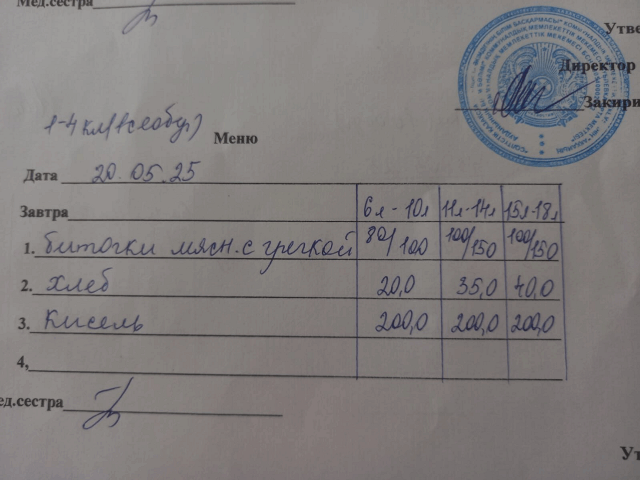 Мед.сестра
Утве
Директор
Закири
1-4 кл (всеобуч)
Меню
Дата 20.05.25
Завтра 6л-10л 11л-14л 15л-18л
1. биточки мясн. с гречкой 80/100 100/150 100/150
2. хлеб 20,0 35,0 40,0
3. кисель 200,0 200,0 200,0
4,
ед.сестра
Ут